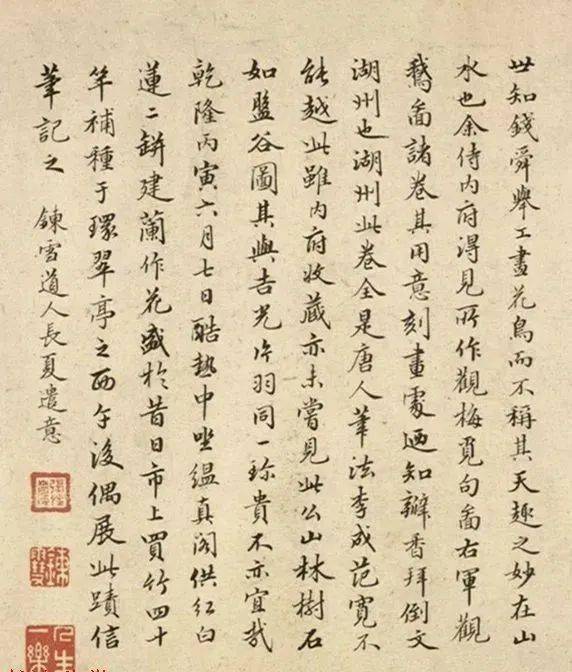 世知錢舜舉工畫花鳥而不稱其天趣之妙在山
水也余侍內府得見所作觀梅覓句圖右軍觀
鵞圖諸卷其用意刻畫處迺知瓣香拜倒文
湖州也湖州此卷全是唐人筆法李成范寬不
能越此雖內府收藏亦未嘗見此公山林樹石
如盤谷圖其與吉光片羽同一珍貴不亦宜哉
乾隆丙寅六月七日酷熱中坐縕真閣供紅白
蓮二缾建蘭作花盛於昔日市上買竹四十
竿補種于環翠亭之西午後偶展此蹟信
筆記之 鍊雪道人長夏遣意
人生一樂